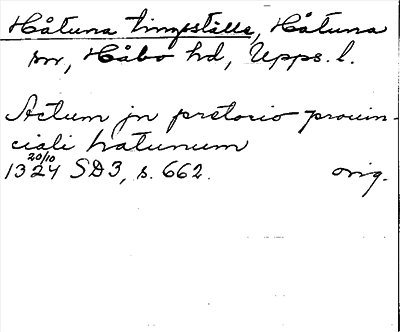 Håtuna tingställe, Håtuna
sn, Håbo hd, Upps. l.
Actum jn pretorio prouin-
ciali hatunum
20/10
1324 SD3, s. 662. orig.